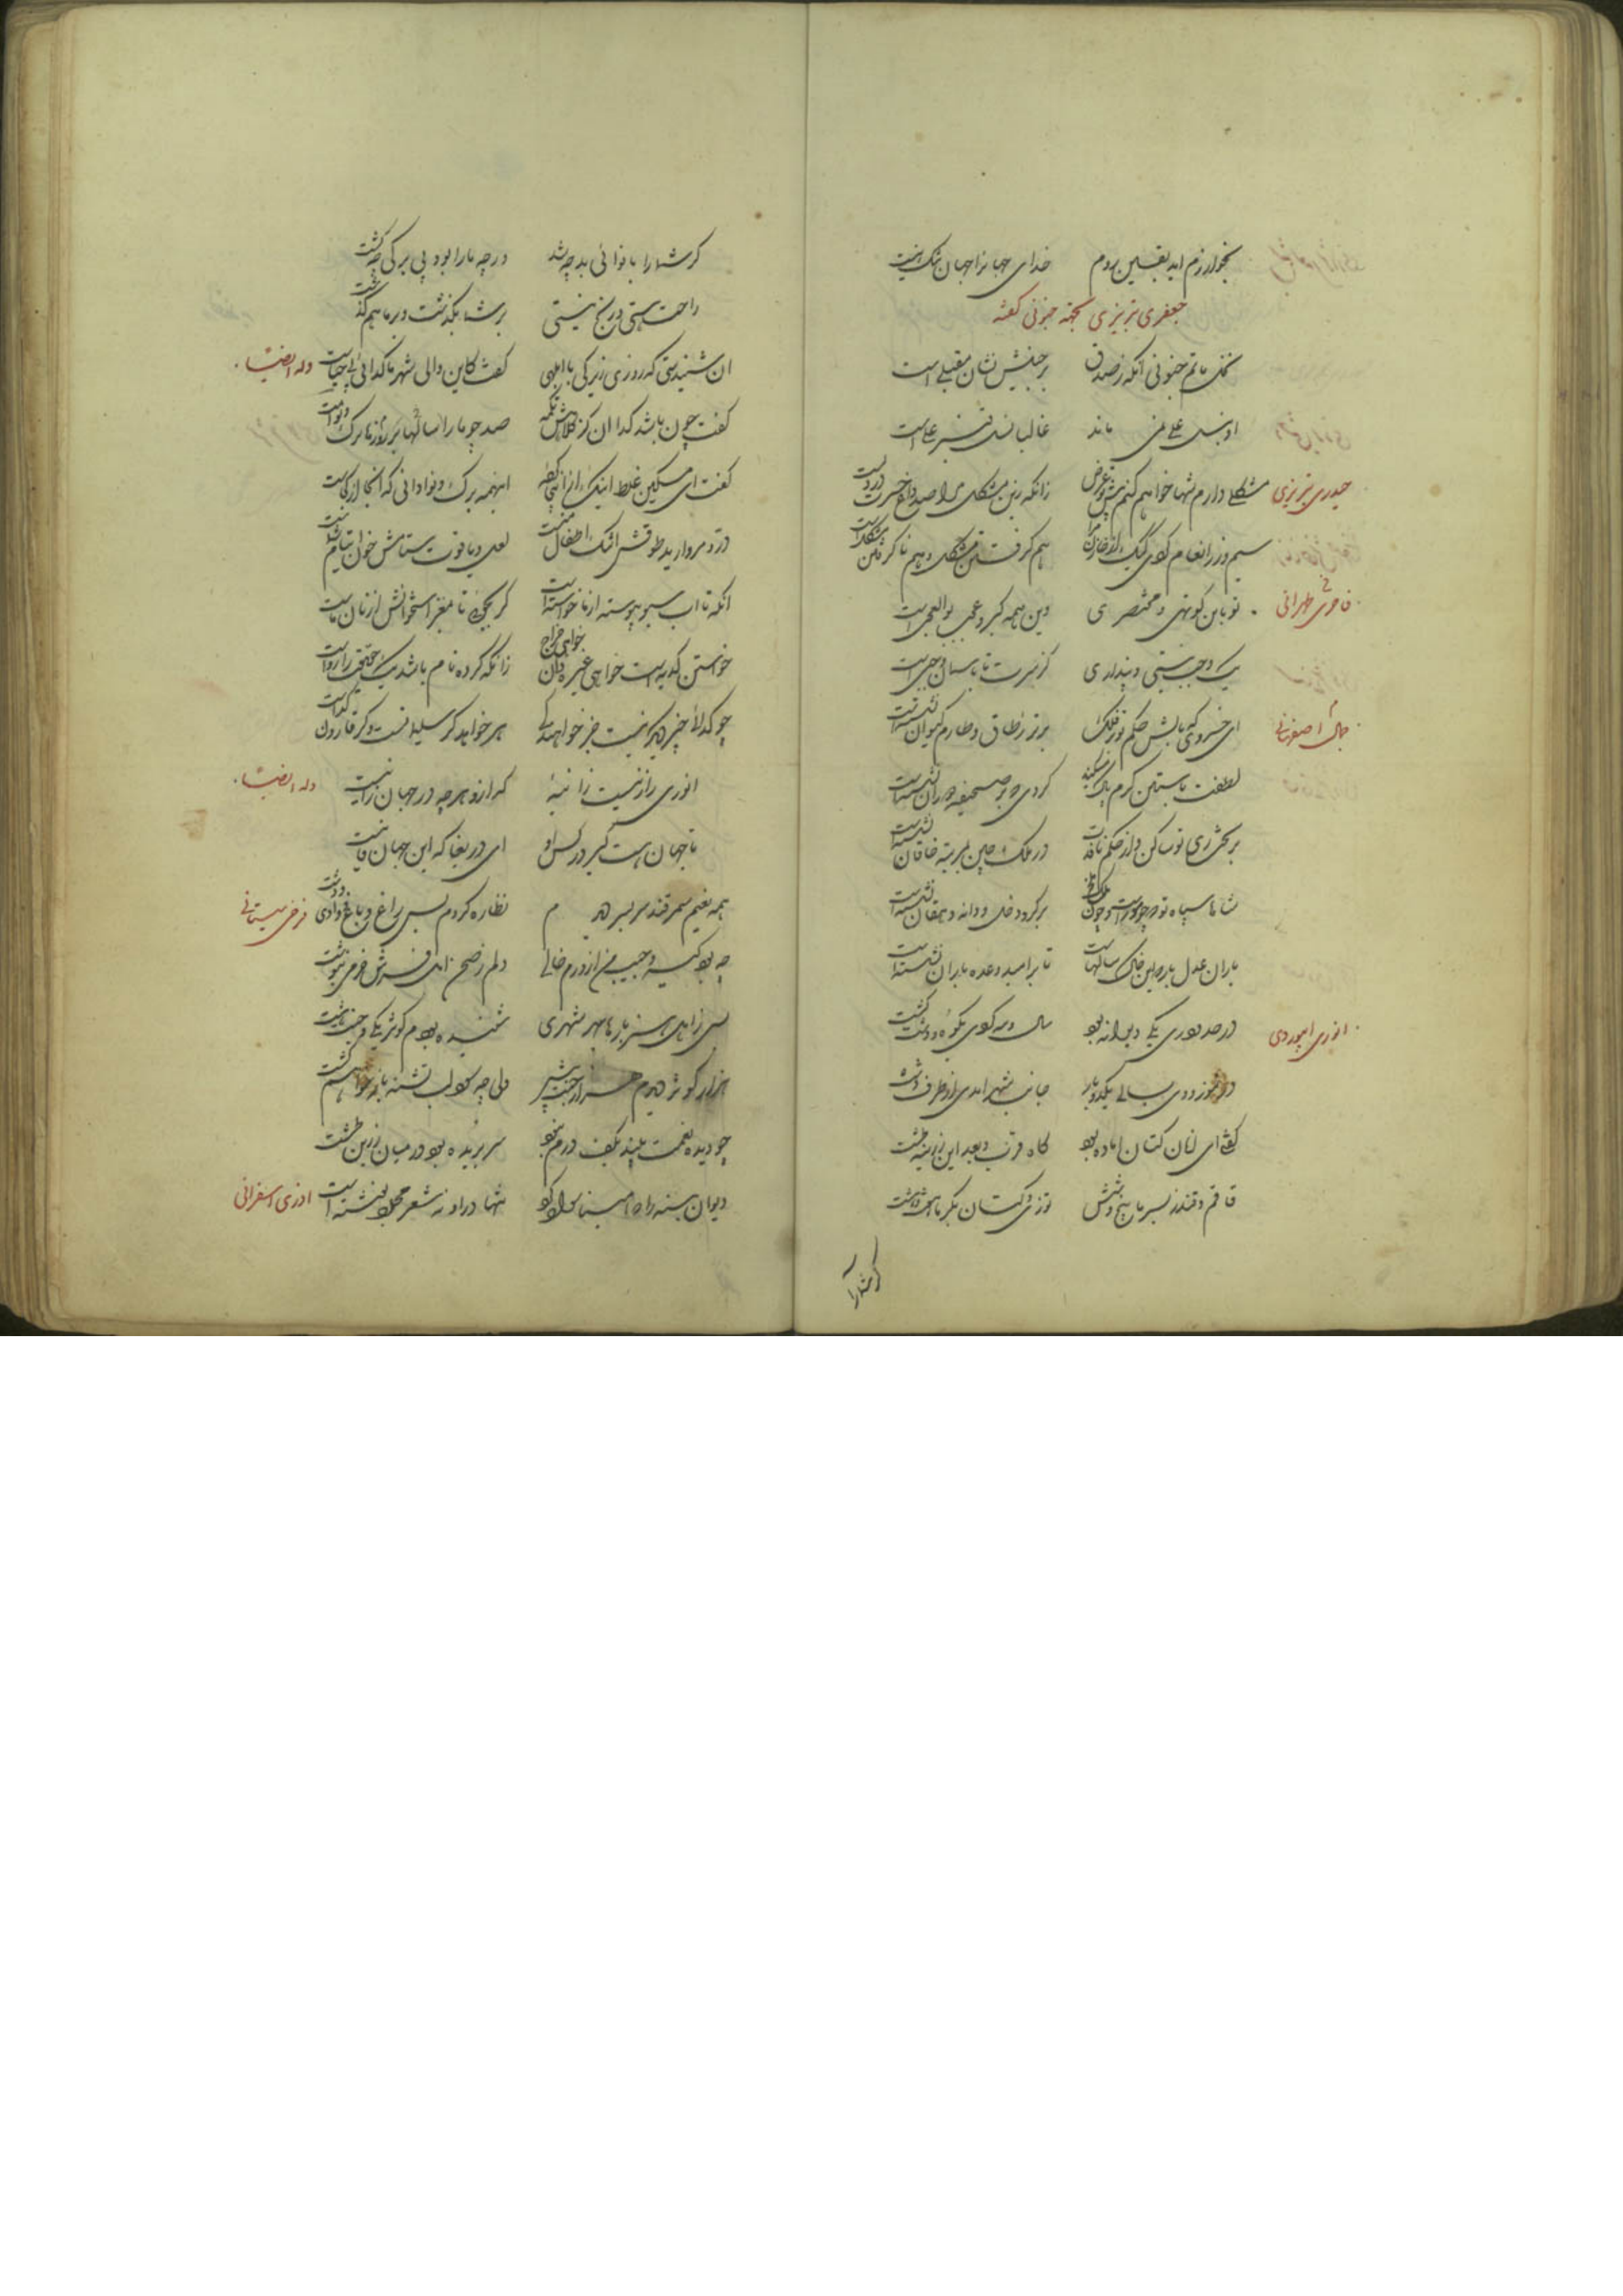 بخوارزم اید بیقین بروم خدای جهانرا جهان تنک نیست
جعفری تبریزی بجهة جنونی کفته
نمک ماتم جنونی آنکه ز صدق بر جبینش نشان مقبلی است
غالبا نسل قنبر علی است
حیدری تبریزی مشکلی دارم شها خواهم کنم پیش تو عرض زانکه زین مشکل مرا صد داغ حسرت در دلست
سیم و زر انعام کردی لیک هم کرفتن مشکل و هم ناکرفتن مشکلست
طهرانی تو باین کوتهی و مختصری وین همه کبر و عجب بوالعجبی است
یک وجب نیستی و پنداری کز سرت تا باسمان وجبی است
جمال اصفهانی ای خسروی که بالش حکم تو بر فلک برتر ز طاق و طارم کیوان نشسته است
لطفت باستین کرم کردی که بر صحیفه نشسته است
در ملک چین بمرتبه خاقان نشسته است
شاها سپاه تو که چو مورست و چون ملخ بر کرد دخل و دانه دهقان نشسته است
باران عدل بار که این خاک سالهاست تا بر امید وعده باران نشسته است
انوری ابیوردی در حد ری یکی دیوانه بود سال و مه کردی بکوه و دشت کشت
در تموز و دی بسالی یکدو بار جانب شهر امدی از طرف دشت
کفت ای انان کتان اماده بود کاه قرب و بعد این زرینه طشت
قاقم و قندز بسرما پنج و شش توزی و کتان بکرما هفت و هشت
کر شما را
کر شما را با نوائی بد چه شد ور چه ما را بود بی برکی چه کشت
راحت هستی و رنج نیستی بر شما بکذشت و بر ما هم کذشت
وله ایضا ان شنیدستی که روزی زیرکی با ابلهی کفت کاین والی شهر ما کدائی بی حیاست
کفت چون باشد کدا ان کز کلاهش تکمه صد چو ما را سالها بل روزها برک و نواست
کفت ای مسکین غلط اینک از اینجا کرده اینهمه برک و نوا دانی که انجا از کجاست
در و مروارید طوقش اشک اطفال منست لعل و یاقوت ستامش خون ایتام شماست
انکه تا اب سبو پیوسته از ما خواسته است کر بجوئی تا مغز استخوانش از نان ماست
خواستن کدیه است خواهی عشر دان خواهی خراج زانکه کر ده نام باشد یک حقیقت را رواست
چو کدائی چیز دیکر نیست جز خواهندکی هر که خواهد کر سلیمانست و کر قارون کداست
وله ایضا انوری را ز نیست زانیه که ازو هر چه در جهان زانیست
تا جهان است کیر در کس او ای دریغا که این جهان فانیست
فرخی سیستانی همه نعیم سمرقند سربسر دیدم نظاره کردم بسی راغ و باغ و وادی و دشت
چو بود کیسه و جیب من از درم خالی دلم ز صحن امل فرش خرمی بنوشت
بسی ز اهل هنر بارها بهر شهری شنیده بودم کوثر یکی و جنت هشت
هزار کوثر دیدم هزار جنت بیش ولی چه سود که لب تشنه باز خواهم کشت
چو دیده نعمت بیند بکف درم نبود سر بریده بود در میان زرین طشت
شعر محمل نوشته است